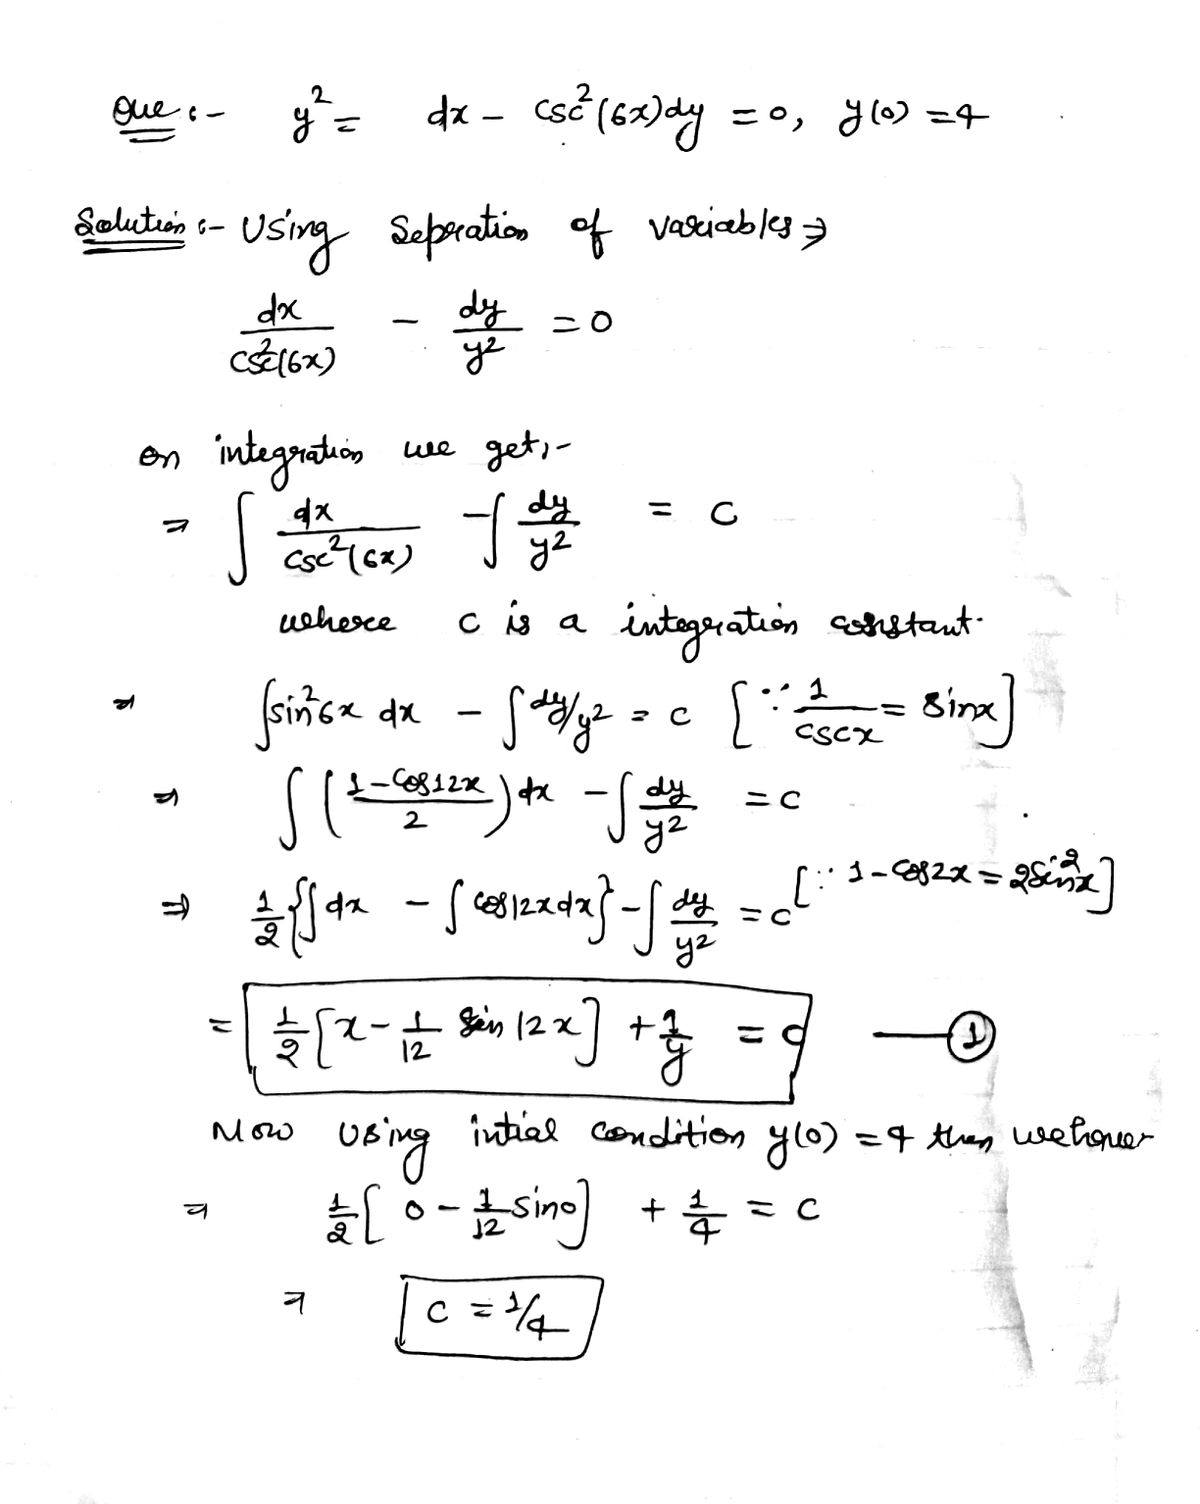 Que :- y² = dx - csc²(6x)dy = 0, y(0) = 4
Solution :- Using Sepration of variables ⇒
dx/csc²(6x) - dy/y² = 0
on integration we get,-
⇒ ∫ dx/csc²(6x) - ∫ dy/y² = c
where c is a integration constant.
⇒ ∫sin²6x dx - ∫dy/y² = c [∵ 1/cscx = sinx]
⇒ ∫((1-cos12x)/2) dx - ∫ dy/y² = c
[∵ 1-cos2x = 2sin²x]
⇒ 1/2 {∫dx - ∫cos12xdx} - ∫ dy/y² = c
= 1/2 [x - 1/12 sin 12x] + 1/y = c —①
Now using intial condition y(0) = 4 then we have
⇒ 1/2 [0 - 1/12 sin0] + 1/4 = c
⇒ c = 1/4